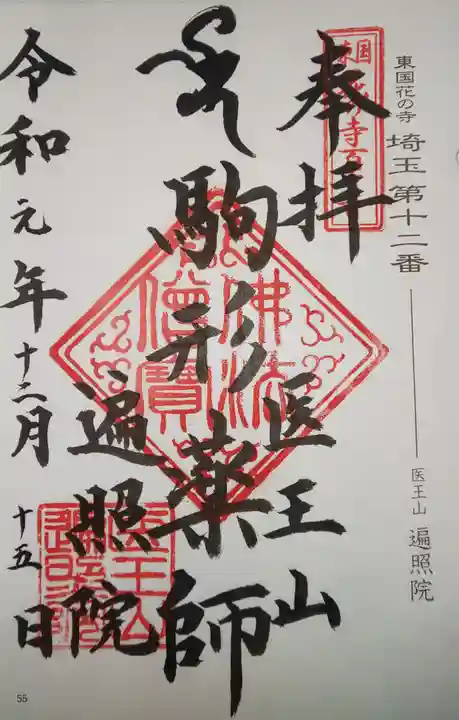 東国花の寺 埼玉第十二番
医王山 遍照院
奉拝
医王山
駒形薬師
遍照院
令和元年十二月十五日
佛法
僧寶
55